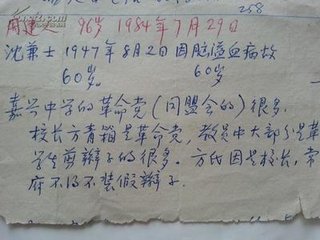 258
周建人 96岁 1984年7月29日
沈兼士 1947年8月2日因脑溢血病故
60岁。 60岁
嘉兴中学的革命党(同盟会的)很多,
校长方青箱是革命党,教员中大部分是革
学生剪辫子的很多。方氏因是校长,常
府不得不装假辫子。